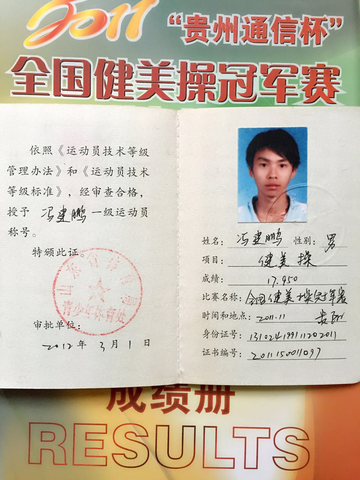 2011
“贵州通信杯”
全国健美操冠军赛
依照《运动员技术等级
管理办法》和《运动员技术
等级标准》，经审查合格，
授予 冯建鹏 一级运动员
称号。
特颁此证。
青少年体育处
审批单位：
2012年3月1日
姓名：冯建鹏 性别：男
项目：健美操
成绩：17.950
比赛名称：全国健美操冠军赛
时间和地点：2011.11
身份证号：
证书编号：2011150011097
成绩册
RESULTS